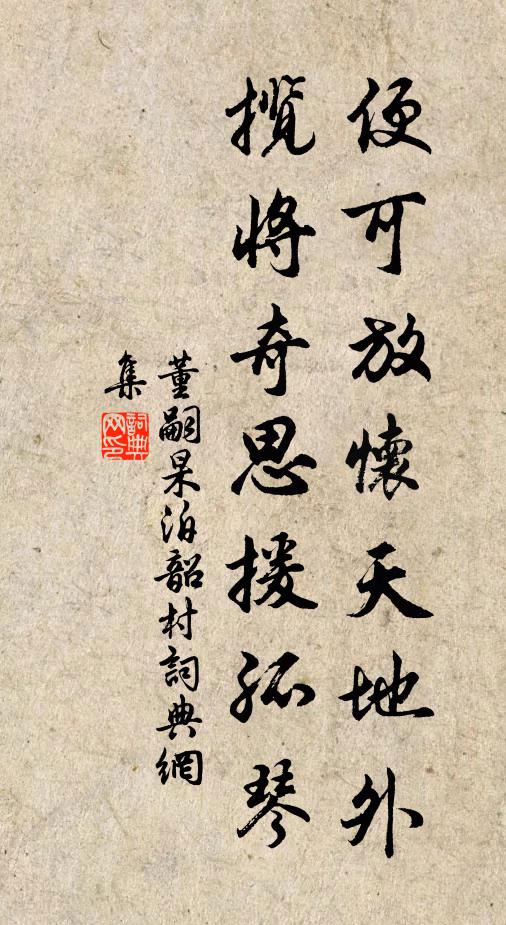 便可放懷天地外
攬將奇思援孤琴
董嗣杲泊韶村詞典網
集
詞典網印